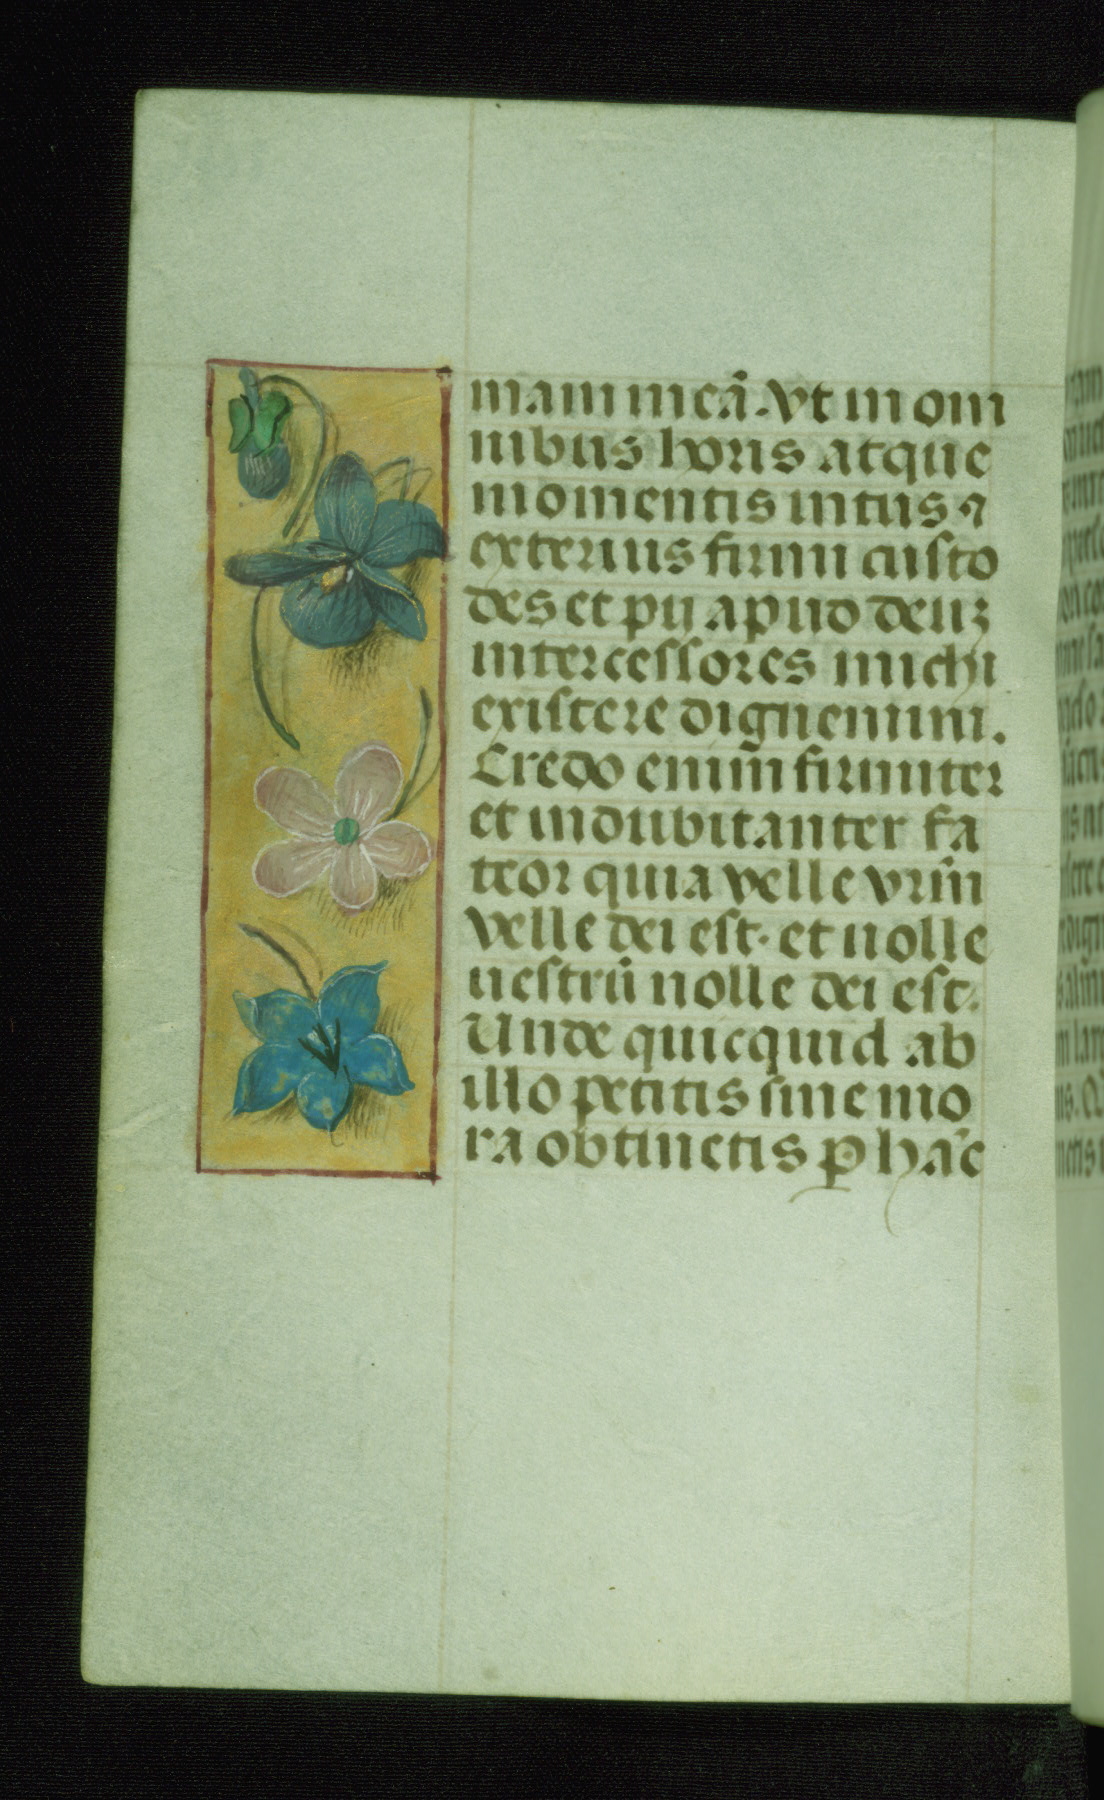 mam meā. vt in om
nibus horis atque
momentis intus ⁊
exterius firmi custo
des et pij apud deuꝫ
intercessores michi
existere dignemini.
Credo enim̄ firmiter
et indubitanter fa
teor quia velle vrīm
velle dei est· et nolle
uestrū nolle dei est.
Unde quicquid ab
illo petitis sine mo
ra obtinetis ꝑ hāc